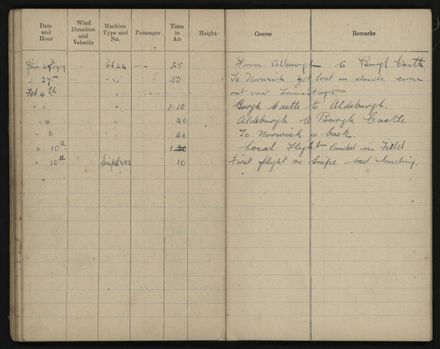 Date and Hour Wind Direction and Velocity Machine Type and No. Passenger Time in Air Height Course Remarks
Jan 24th 1919 6624 25 From Alburgh to Burgh Castle
" 27th " " 50 To Norwich got lost in clouds came
Feb 4th out over Lowestoft
" " 1-10 Burgh Castle to Aldeburgh.
" 4 " 40 Aldeburgh to Burgh Castle
" 6 " 40 To Norwich & back.
" 10th " Local Flight landed in Field
" 10th Snipe 10 First flight on Snipe bad landing.